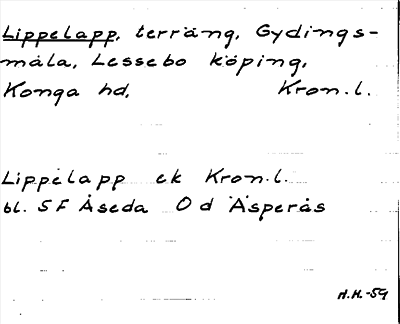 Lippelapp, terräng, Gydings-
måla, Lessebo köping,
Konga hd, Kron.l.
Lippelapp ek Kron.l.
bl. 5 F Åseda O d Äsperås
H.H.-59